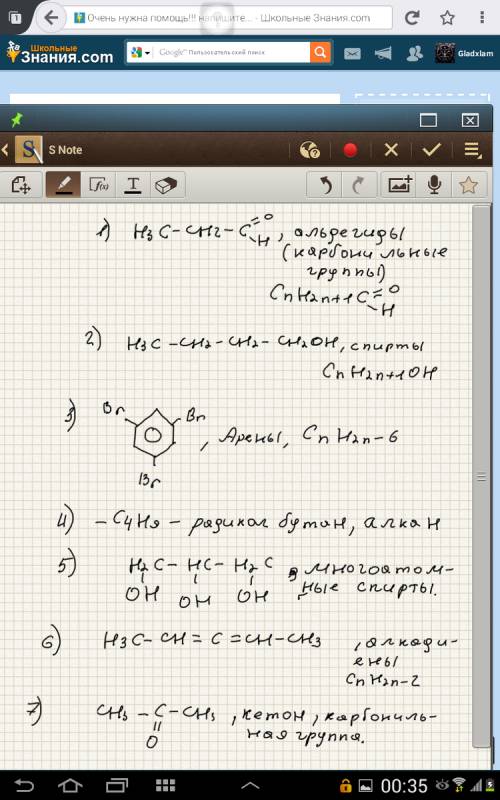 Очень нужна помощь!!! напишите... - Школьные Знания.com
Школьные
Знания.com
Google™ Пользовательский поиск
Gladxlam
S Note
f(x)
T
1) H3C-CH2-C=O
H
, альдегиды
(карбонильные
группы)
CnH2n+1C=O
H
2) H3C-CH2-CH2-CH2OH, спирты
CnH2n+1OH
3) Br
Br
Br
, Арены, CnH2n-6
4) -C4H9 - радикал бутан, алкан
5) H2C-HC-H2C
OH OH OH
, многоатом-
ные спирты.
6) H3C-CH=C=CH-CH3
, алкади-
ены
CnH2n-2
7) CH3-C-CH3, кетон, карбониль-
O
ная группа.
00:35